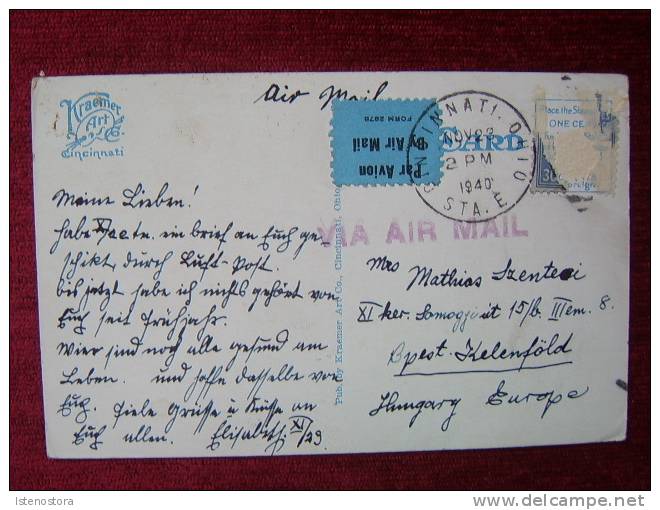 Kraemer
Art
Co.
Cincinnati
Air Mail
Par Avion
By Air Mail
FORM 2978
CARD
CINCINNATI, OHIO
NOV 29
2 PM
1940
STA. E
Place the Stamp
ONE CE
30
Foreign
VIA AIR MAIL
Meine Lieben!
habe XI/22 tn. ein brief an Euch ge-
schikt, durch Luft-Post.
bis jetzt habe ich nichts gehört von
Euch seit Frühjahr.
Wier sind noch alle gesund am
Leben. und hoffe dasselbe von
Euch. Fiele Grüsse u Küsse an
Euch allen. Elisabeth. XI/29
Pub. by Kraemer Art Co., Cincinnati, Ohio
Mrs Mathias Szenteci
XI ker. Somogyi út 15/b. III em. 8.
Bpest-Kelenföld
Hungary Europe
Istenostora
delcampe.net